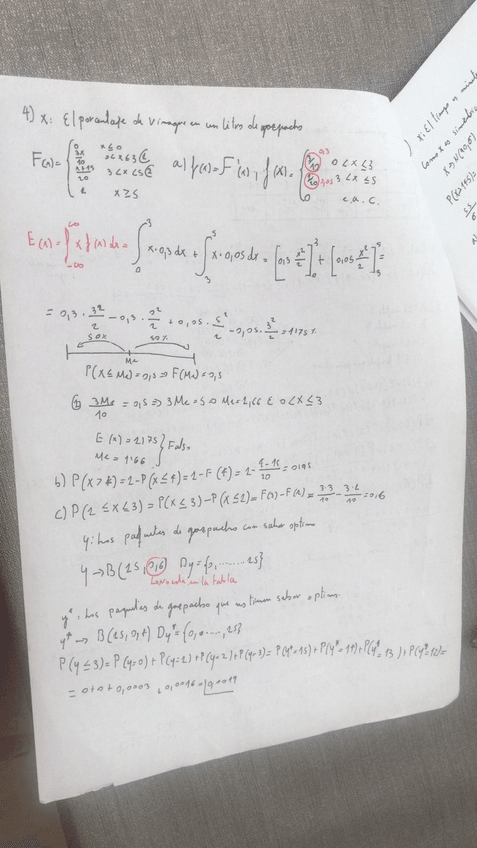 4) X: El porcentaje de vinagre en un litro de gazpacho
F(x)= { 0 x≤0
3x/10 0<x≤3
x+15/20 3<x≤5
1 x≥5
a) f(x)=F'(x), f(x)= { 3/10 0,3 0<x≤3
1/20 0,05 3<x≤5
0 e.o.c.
E(x)=∫ x f(x) dx = ∫ x·0,3 dx + ∫ x·0,05 dx = [0,3 x²/2] + [0,05 x²/2] =
= 0,3·3²/2 - 0,3·0²/2 + 0,05·5²/2 - 0,05·3²/2 = 1,75%
50% 50%
Me
P(X≤Me)=0,5 ⇒ F(Me)=0,5
① 3Me/10 = 0,5 ⇒ 3Me=5 ⇒ Me=1,66 ∈ 0<x≤3
E(x)=1,75
Me=1,66 } Falso
b) P(X>4)=1-P(X≤4)=1-F(4)=1-4+15/20=0,05
c) P(1≤X≤3)=P(X≤3)-P(X≤1)=F(3)-F(1)=3·3/10-3·1/10=0,6
Y: Los paquetes de gazpacho con sabor optimo
Y→B(15, 0,6) Dy={0,........15}
en la tabla
Y*: Los paquetes de gazpacho que no tienen sabor optimo.
Y*→B(15, 0,4) Dy*={0,......,15}
P(Y≤3)=P(Y=0)+P(Y=1)+P(Y=2)+P(Y=3)=P(Y*=15)+P(Y*=14)+P(Y*=13)+P(Y*=12)=
= 0+0+0,0003+0,0016=0,0019
X: El tiempo en minutos
Como X es